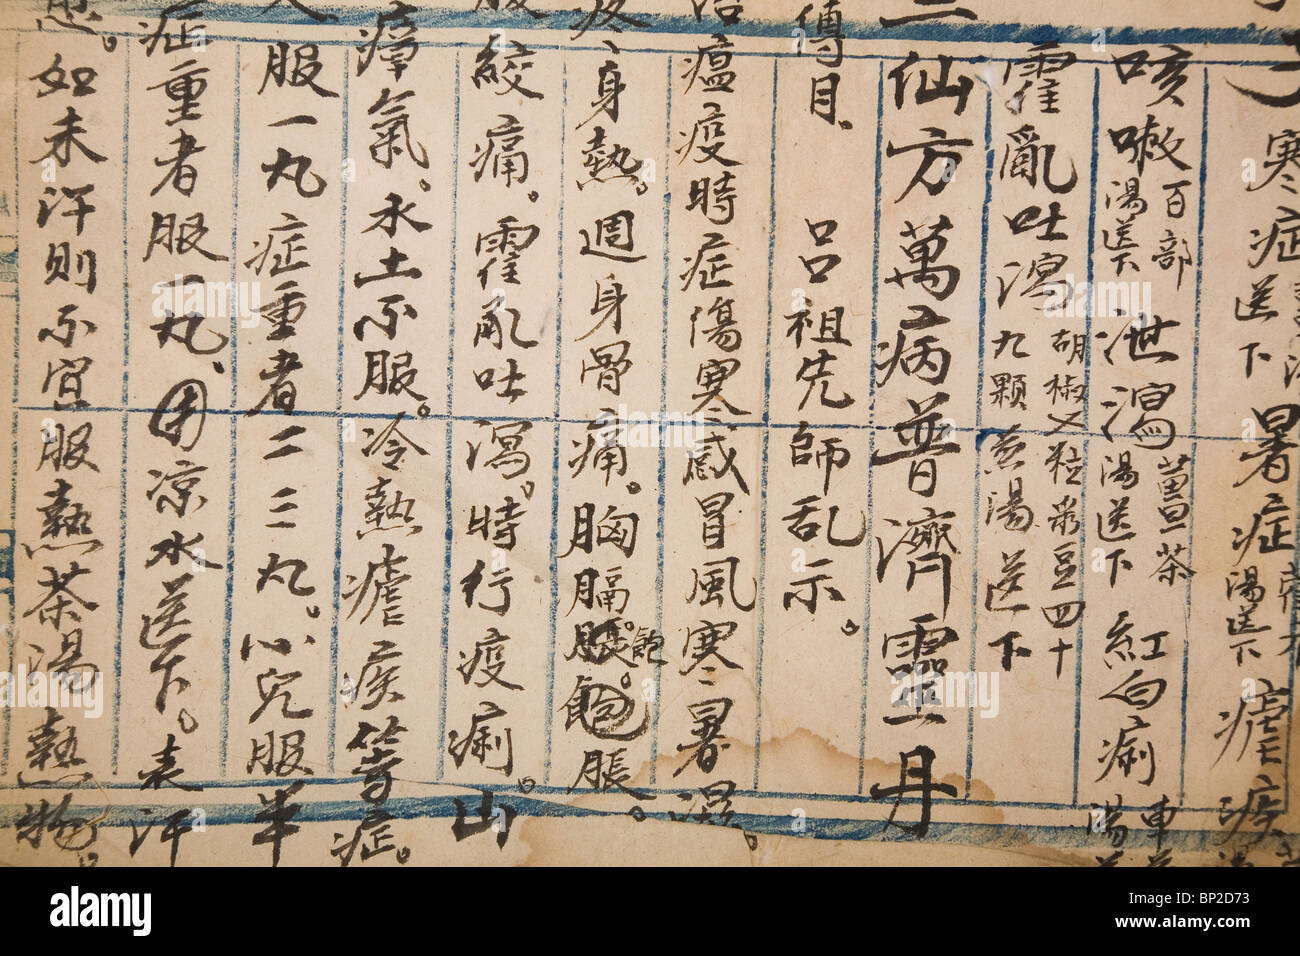 寒症
送下
暑症
湯送下
瘧疾
咳嗽百部湯送下 泄瀉薑茶湯送下 紅白痢車
霍亂吐瀉胡椒七粒泉豆四十九顆煮湯送下
仙方萬病普濟靈丹
傳目、 呂祖先師乱示。
瘟疫時症傷寒感冒風寒暑濕。
疼身熱。週身骨痛。胸膈。脹飽脹。
飽
服絞痛。霍乱吐瀉。時行疫痢。山
瘴氣。水土不服。冷熱瘧疾等症。
服一丸症重者二三丸。小兒服半
症重者服一丸、用凉水送下。表汗
如未汗則不宜服熱茶湯熱物。
alamy
Image ID: BP2D73
www.alamy.com